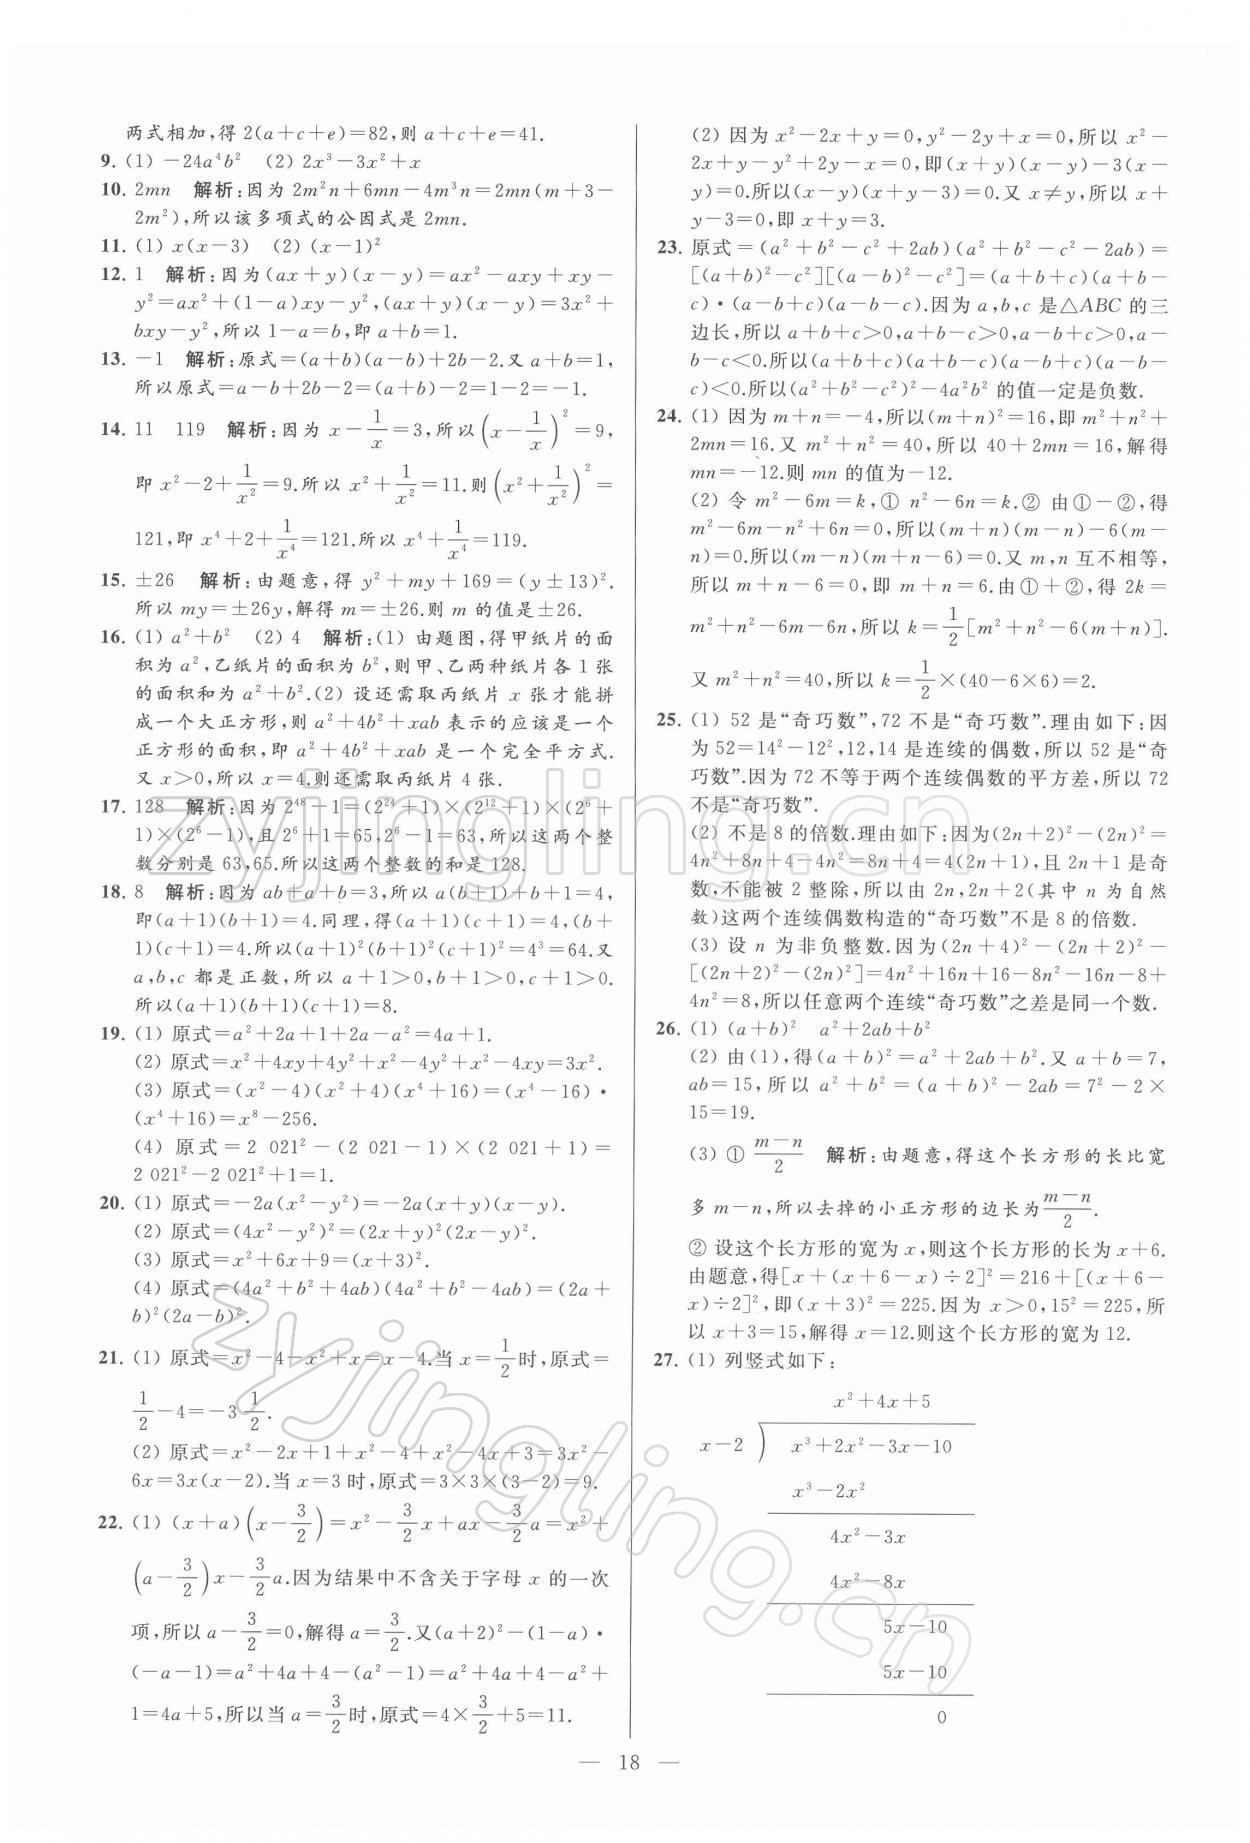 两式相加,得 2(a+c+e)=82,则 a+c+e=41.
9. (1) -24a⁴b² (2) 2x³-3x²+x
10. 2mn 解析:因为 2m²n+6mn-4m³n=2mn(m+3-
2m²),所以该多项式的公因式是 2mn.
11. (1) x(x-3) (2) (x-1)²
12. 1 解析:因为(ax+y)(x-y)=ax²-axy+xy-
y²=ax²+(1-a)xy-y²,(ax+y)(x-y)=3x²+
bxy-y²,所以 1-a=b,即 a+b=1.
13. -1 解析:原式=(a+b)(a-b)+2b-2.又 a+b=1,
所以原式=a-b+2b-2=(a+b)-2=1-2=-1.
14. 11 119 解析:因为 x-1/x=3,所以(x-1/x)²=9,
即 x²-2+1/x²=9.所以 x²+1/x²=11.则(x²+1/x²)²=
121,即 x⁴+2+1/x⁴=121.所以 x⁴+1/x⁴=119.
15. ±26 解析:由题意,得 y²+my+169=(y±13)².
所以 my=±26y,解得 m=±26.则 m 的值是±26.
16. (1) a²+b² (2) 4 解析:(1) 由题图,得甲纸片的面
积为 a²,乙纸片的面积为 b²,则甲、乙两种纸片各 1 张
的面积和为 a²+b².(2) 设还需取丙纸片 x 张才能拼
成一个大正方形,则 a²+4b²+xab 表示的应该是一个
正方形的面积,即 a²+4b²+xab 是一个完全平方式.
又 x>0,所以 x=4.则还需取丙纸片 4 张.
17. 128 解析:因为 2⁴⁸-1=(2²⁴+1)×(2¹²+1)×(2⁶+
1)×(2⁶-1),且 2⁶+1=65,2⁶-1=63,所以这两个整
数分别是 63,65.所以这两个整数的和是 128.
18. 8 解析:因为 ab+a+b=3,所以 a(b+1)+b+1=4,
即(a+1)(b+1)=4.同理,得(a+1)(c+1)=4,(b+
1)(c+1)=4.所以(a+1)²(b+1)²(c+1)²=4³=64.又
a,b,c 都是正数,所以 a+1>0,b+1>0,c+1>0.
所以(a+1)(b+1)(c+1)=8.
19. (1) 原式=a²+2a+1+2a-a²=4a+1.
(2) 原式=x²+4xy+4y²+x²-4y²+x²-4xy=3x².
(3) 原式=(x²-4)(x²+4)(x⁴+16)=(x⁴-16)·
(x⁴+16)=x⁸-256.
(4) 原式=2 021²-(2 021-1)×(2 021+1)=
2 021²-2 021²+1=1.
20. (1) 原式=-2a(x²-y²)=-2a(x+y)(x-y).
(2) 原式=(4x²-y²)²=(2x+y)²(2x-y)².
(3) 原式=x²+6x+9=(x+3)².
(4) 原式=(4a²+b²+4ab)(4a²+b²-4ab)=(2a+
b)²(2a-b)².
21. (1) 原式=x²-4-x²+x=x-4.当 x=1/2时,原式=
1/2-4=-3 1/2.
(2) 原式=x²-2x+1+x²-4+x²-4x+3=3x²-
6x=3x(x-2).当 x=3 时,原式=3×3×(3-2)=9.
22. (1) (x+a)(x-3/2)=x²-3/2x+ax-3/2a=x²+
(a-3/2)x-3/2a.因为结果中不含关于字母 x 的一次
项,所以 a-3/2=0,解得 a=3/2.又(a+2)²-(1-a)·
(-a-1)=a²+4a+4-(a²-1)=a²+4a+4-a²+
1=4a+5,所以当 a=3/2时,原式=4×3/2+5=11.
(2) 因为 x²-2x+y=0,y²-2y+x=0,所以 x²-
2x+y-y²+2y-x=0,即(x+y)(x-y)-3(x-
y)=0.所以(x-y)(x+y-3)=0.又 x≠y,所以 x+
y-3=0,即 x+y=3.
23. 原式=(a²+b²-c²+2ab)(a²+b²-c²-2ab)=
[(a+b)²-c²][(a-b)²-c²]=(a+b+c)(a+b-
c)·(a-b+c)(a-b-c).因为 a,b,c 是△ABC 的三
边长,所以 a+b+c>0,a+b-c>0,a-b+c>0,a-
b-c<0.所以(a+b+c)(a+b-c)(a-b+c)(a-b-
c)<0.所以(a²+b²-c²)²-4a²b² 的值一定是负数.
24. (1) 因为 m+n=-4,所以(m+n)²=16,即 m²+n²+
2mn=16.又 m²+n²=40,所以 40+2mn=16,解得
mn=-12.则 mn 的值为-12.
(2) 令 m²-6m=k,① n²-6n=k.② 由①-②,得
m²-6m-n²+6n=0,所以(m+n)(m-n)-6(m-
n)=0.所以(m-n)(m+n-6)=0.又 m,n 互不相等,
所以 m+n-6=0,即 m+n=6.由①+②,得 2k=
m²+n²-6m-6n,所以 k=1/2[m²+n²-6(m+n)].
又 m²+n²=40,所以 k=1/2×(40-6×6)=2.
25. (1) 52 是“奇巧数”,72 不是“奇巧数”.理由如下:因
为 52=14²-12²,12,14 是连续的偶数,所以 52 是“奇
巧数”.因为 72 不等于两个连续偶数的平方差,所以 72
不是“奇巧数”.
(2) 不是 8 的倍数.理由如下:因为(2n+2)²-(2n)²=
4n²+8n+4-4n²=8n+4=4(2n+1),且 2n+1 是奇
数,不能被 2 整除,所以由 2n,2n+2(其中 n 为自然
数)这两个连续偶数构造的“奇巧数”不是 8 的倍数.
(3) 设 n 为非负整数.因为(2n+4)²-(2n+2)²-
[(2n+2)²-(2n)²]=4n²+16n+16-8n²-16n-8+
4n²=8,所以任意两个连续“奇巧数”之差是同一个数.
26. (1) (a+b)² a²+2ab+b²
(2) 由(1),得(a+b)²=a²+2ab+b².又 a+b=7,
ab=15,所以 a²+b²=(a+b)²-2ab=7²-2×
15=19.
(3) ① (m-n)/2 解析:由题意,得这个长方形的长比宽
多 m-n,所以去掉的小正方形的边长为(m-n)/2.
② 设这个长方形的宽为 x,则这个长方形的长为 x+6.
由题意,得[x+(x+6-x)÷2]²=216+[(x+6-
x)÷2]²,即(x+3)²=225.因为 x>0,15²=225,所
以 x+3=15,解得 x=12.则这个长方形的宽为 12.
27. (1) 列竖式如下:
x²+4x+5
x-2 ) x³+2x²-3x-10
x³-2x²
4x²-3x
4x²-8x
5x-10
5x-10
0
— 18 —
zyjingling.cn
zyjingling.cn